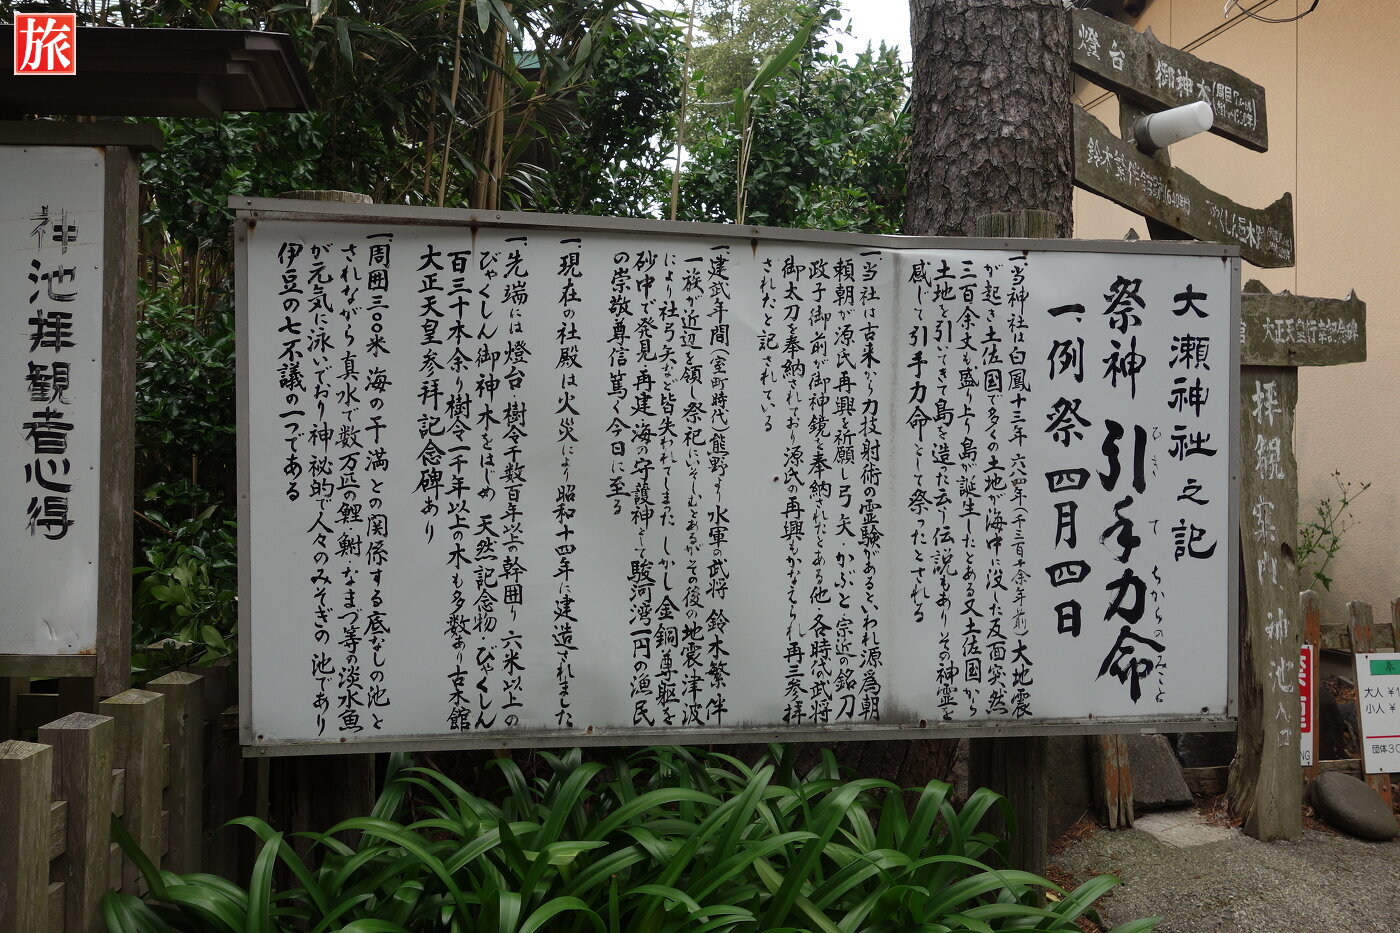 旅
大瀬神社之記
祭神 引手力命
ひき て ちからの みこと
一、例祭 四月四日
一、当神社は白鳳十三年 六八四年(千三百年余年前)大地震
が起き土佐国で多くの土地が海中に没した反面突然
三百余丈も盛り上り島が誕生したとある又土佐国から
土地を引いてきて島を造った云う伝説もありその神霊を
感じて引手力命として祭ったとされる
一、当社は古来から力技射術の霊験があるといわれ源為朝
頼朝が源氏再興を祈願し弓矢 かぶと 宗近の銘刀
政子御前が御神鏡を奉納されたとある他、各時代の武将
御太刀を奉納されており源氏の再興もかなえられ再三参拝
されたと記されている
一、建武年間(室町時代)熊野より水軍の武将 鈴木繁伴
一族が近辺を領し祭祀にいそしむとあるがその後の地震津波
により社弓矢など皆失われてしまった しかし金銅尊躯を
砂中で発見、再建、海の守護神として駿河湾一円の漁民
の崇敬尊信篤く今日に至る
一、現在の社殿は火災により昭和十四年に建造されました
一、先端には燈台・樹令千数百年以上の幹囲り六米以上の
びゃくしん御神木をはじめ 天然記念物・びゃくしん
百三十本余り樹令一千年以上の木も多数あり古木館
大正天皇参拝記念碑あり
一、周囲三〇〇米 海の干満との関係する底なしの池と
されながら真水で数万匹の鯉鮒・なまづ等の淡水魚
が元気に泳いでおり神秘的で人々のみそぎの池であり
伊豆の七不議の一つである
神池拝観者心得
燈台 御神木
鈴木繁伴
びゃくしん巨木
大正天皇行幸記念碑
拝観案内 神池入口
大人 ¥
小人 ¥
団体30